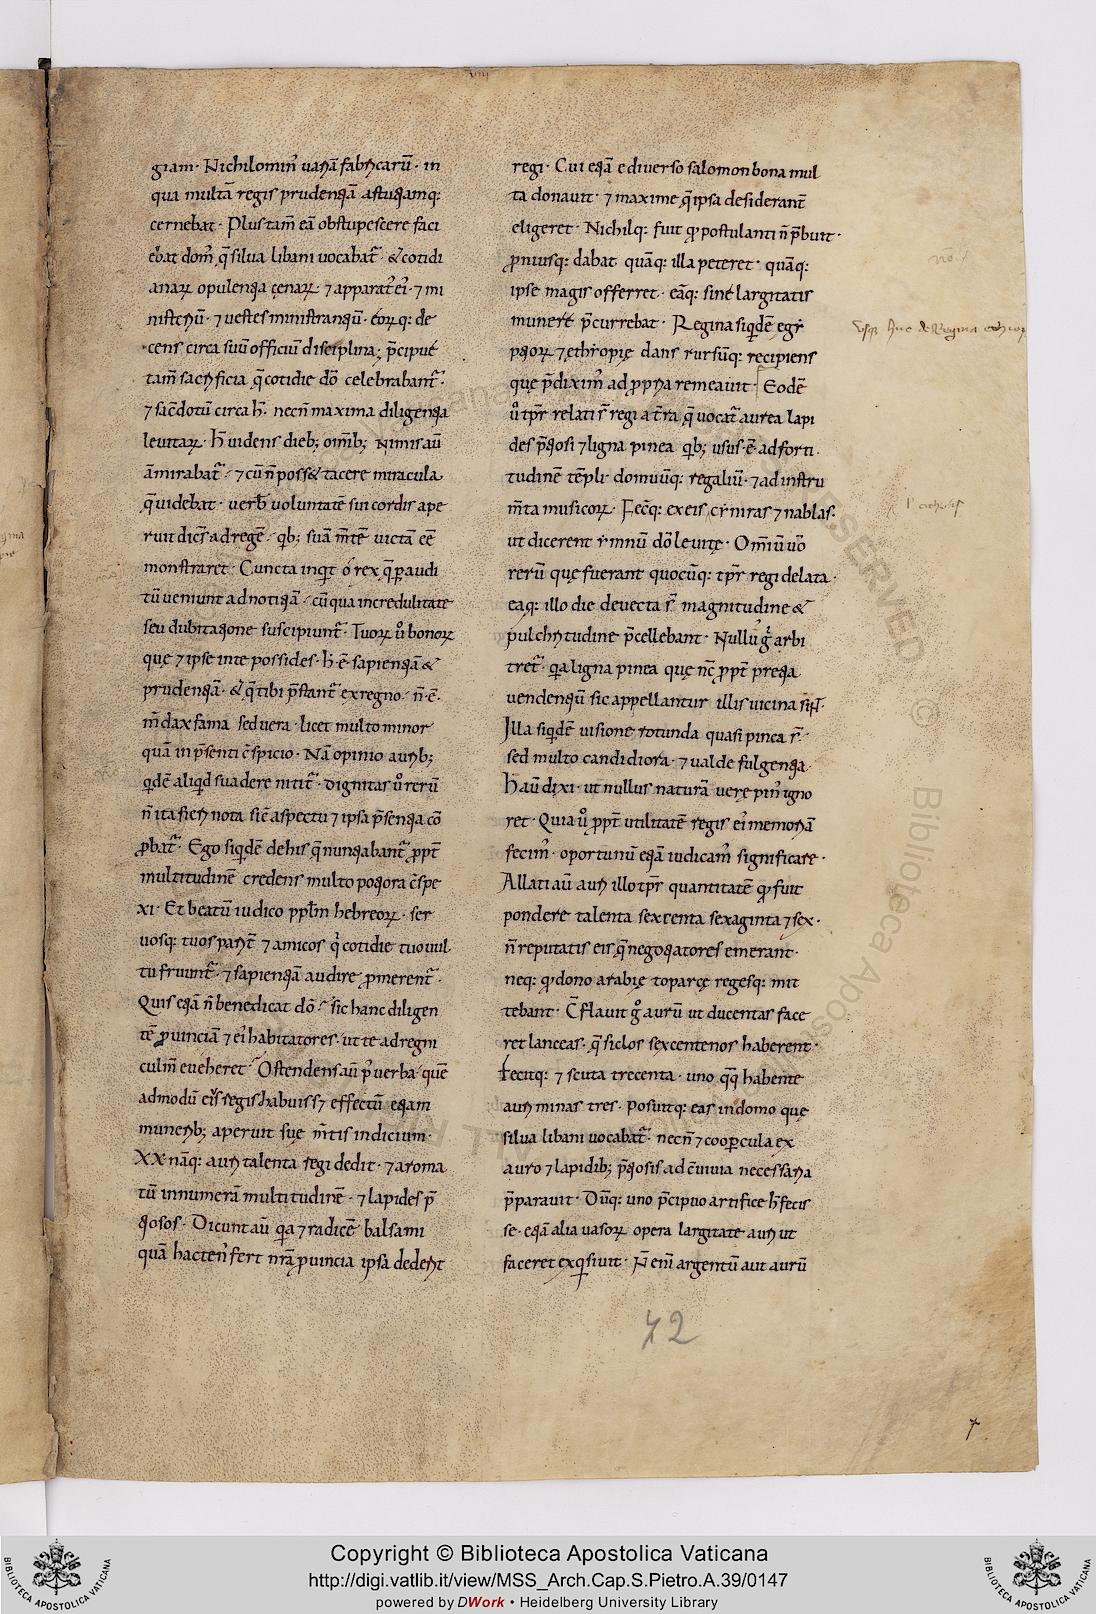 giam· Nichilomin᷒ uariā fabricarū· in
qua multā regis prudentiā astutiamq:
cernebat· Plus tam̄ eā obstupescere faci
ebat dom᷒ q̄ silua libani uocabat᷑· & cotidi
anaꝝ opulentia cęnaꝝ· ⁊ apparat᷒ ei᷒· ⁊ mi
nisteriū· ⁊ uestes ministrantiū· eoꝝq: de
cens circa suū officiū disciplina; p̄cipue
tam̄ sacrificia q̄ cotidie dō celebrabant᷑·
⁊ sac̄dotū circa h̄· necn̄ maxima diligentia
leuitaꝝ· h̄ uidens dieb; om̄ib; nimis aū
āmirabat᷑· ⁊ cū n̄ poss& tacere miracula
q̄ uidebat· uerb̄ uoluntatē sui cordis ape
ruit dicēs ad regē· qb; suā m̄tē uictā eē
monstraret· Cuncta inqt o rex q̄ ꝑ audi
tū ueniunt ad notitiā· cū qua incredulitate
seu dubitatione suscipiunt᷑· Tuoꝝ u᷒o bonoꝝ
quę ⁊ ipse in te possides· h̄ ē sapientiā &
prudentiā· & q̄ tibi p̄stant᷑ ex regno· n̄ ē·
m̄dax fama sed uera· licet multo minor
quā in p̄senti c̄spicio· Nā opinio aurib;
qdē aliqd suadere nitit᷑· dignitas u᷒o rerū
n̄ ita fieri nota sic̄ aspectu ⁊ ipsa p̄sentia cō
ꝓbat᷑· Ego siqdē de his q̄ nuntiabant᷑ ꝓpt̄
multitudinē credens multo potiora c̄spe
xi· Et beatū iudico ppl̄m hebreoꝝ· ser
uosq: tuos parit̄ ⁊ amicos qⁱ cotidie tuo uul
tu fruunt᷑· ⁊ sapientiā audire ꝓmerent᷑·
Quis etiā n̄ benedicat dō· sic hanc diligen
tē ꝓuinciā ⁊ ei᷒ habitatores· ut te ad regni
culm̄ eueheret· Ostendens aū p᷒ uerba quē
admodū eis regis habuiss⁊ effectū etiam
munerib; aperuit suę m̄tis indicium·
XX nāq: auri talenta regi dedit· ⁊ aroma
tū innumerā multitudinē· ⁊ lapides p̄
tiosos· Dicunt aū qa ⁊ radicē balsami
quā hacten᷒ fert nr̄a ꝓuincia ipsa dederit
regi· Cui etiā e diuerso salomon bona mul
ta donauit· ⁊ maxime q̄ ipsa desiderant̄
eligeret· Nichilq: fuit qđ postulanti n̄ p̄buit·
ꝓniusq: dabat quāq: illa peteret· quāq:
ipse magis offerret· eāq: sine largitatis
munere p̄currebat· Regina siqdē egy
ptioꝝ ⁊ ęthiopię dans rursūq: recipiens
quę p̄dixim᷒ ad ꝓpria remeauit· Eodē
u᷒o tp̄r relati s̄ regi a t̄ra q̄ uocat᷑ aurea lapi
des p̄tiosi ⁊ ligna pinea qb; usus· ē ad forti
tudinē tēpli· domuūq: regaliū· ⁊ ad instru
m̄ta musicoꝝ· Fec̄q: ex eis cyniras ⁊ nablas·
ut dicerent ymnū dō leuitę· Om̄iū u᷒o
rerū quę fuerant quocūq: tp̄r regi delata·
eaq: illo die deuecta s̄ magnitudine &
pulchritudine p̄cellebant· Nullus g᷒ arbi
tret᷑· qa ligna pinea quę nc̄ ꝓpt̄ pretia
uendentiū sic appellantur illis uicina sint·
Illa siqdē uisione rotunda quasi pinea s̄·
sed multo candidiora· ⁊ ualde fulgentia·
Hau dixi· ut nullus naturā uerę pini igno
ret· Quia u᷒o ꝓpt̄ utilitatē regis ei᷒ memoriā
fecim᷒· oportunū etiā iudicam᷒ significare·
Allati aū auri illo tp̄r quantitatē qđ fuit
pondere talenta sexcenta sexaginta ⁊ sex·
n̄ reputatis eis q̄ negotiatores emerant·
neq: qđ dono arabię toparcę regesq: mit
tebant· C̄flauit g᷒ aurū ut ducentas face
ret lanceas· q̄ siclos sexcentenos haberent·
Fecitq: ⁊ scuta trecenta· uno qq habente
auri minas tres· Posuitq: eas in domo quę
silua libani uocabat᷑· necn̄ ⁊ coopercula ex
auro ⁊ lapidib; p̄tiosis ad c̄uiuia necessaria
p̄parauit· Dūq: uno p̄cipuo artifice h̄ fecis
se· etiā alia uasoꝝ opera largitate auri ut
faceret exqsiuit· N̄ eni᷒ argentū aut aurū
72
Copyright © Biblioteca Apostolica Vaticana
http://digi.vatlib.it/view/MSS_Arch.Cap.S.Pietro.A.39/0147
powered by DWork • Heidelberg University Library
BIBLIOTECA APOSTOLICA VATICANA
BIBLIOTECA APOSTOLICA VATICANA